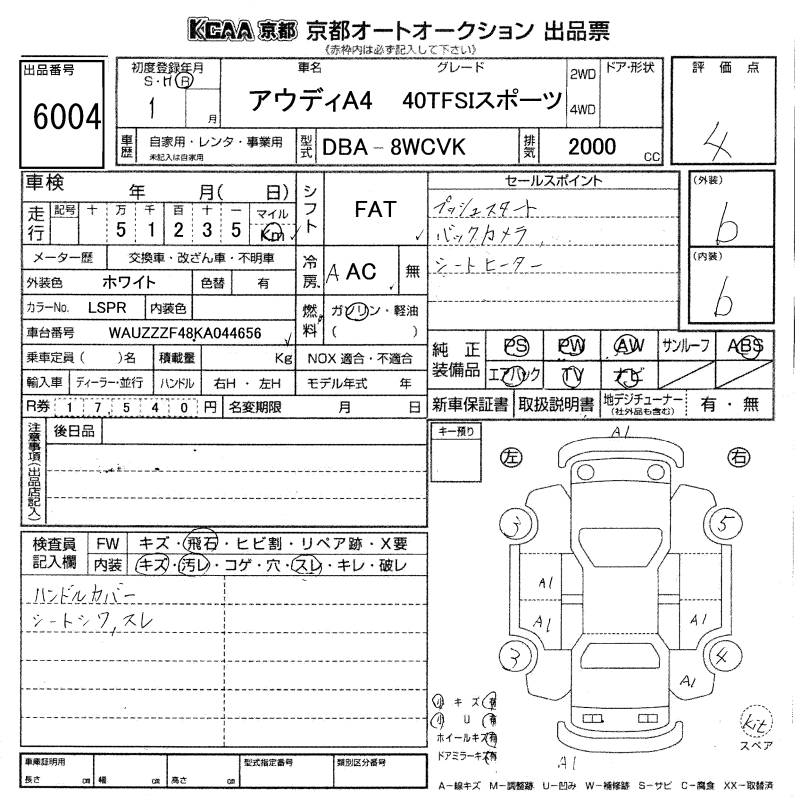 KCAA 京都 京都オートオークション 出品票
《赤枠内は必ず記入して下さい》
出品番号
6004
初度登録年月
S・H R
1 月
車名 グレード
アウディA4 40TFSIスポーツ
2WD
4WD
ドア・形状
評価点
4
車歴 自家用・レンタ・事業用
未記入は自家用
型式 DBA－8WCVK
排気 2000 CC
車検 年 月( 日)
走行 記号 十 万 千 百 十 一 マイル
5 1 2 3 5 Km
メーター歴 交換車・改ざん車・不明車
外装色 ホワイト 色替 有
カラーNo. LSPR 内装色
車台番号 WAUZZZF48KA044656
乗車定員( )名 積載量 Kg
輸入車 ディーラー・並行 ハンドル 右H・左H
R券 1 7 5 4 0 円 名変期限 月 日
シフト FAT
冷房 A AC 無
燃料 ガソリン・軽油
( )
NOX 適合・不適合
モデル年式 年
セールスポイント
プッシュスタート
バックカメラ
シートヒーター
(外装)
b
(内装)
b
純正装備品 PS PW AW サンルーフ ABS
エアバック TV ナビ
新車保証書 取扱説明書 地デジチューナー(社外品も含む) 有・無
注意事項(出品店記入)
後日品
キー預り
検査員記入欄
FW キズ・飛石・ヒビ割・リペア跡・X要
内装 キズ・汚レ・コゲ・穴・スレ・キレ・破レ
ハンドルカバー
シートシワ,スレ
A1
左 右
3 5
A1
A1 A1
3 4
A1
小 キズ 有
小 U 有
ホイールキズ 有
ドアミラーキズ 有
A1
kit
スペア
車庫証明用
長さ cm 幅 cm 高さ cm
型式指定番号
類別区分番号
A－線キズ M－調整跡 U－凹み W－補修跡 S－サビ C－腐食 XX－取替済